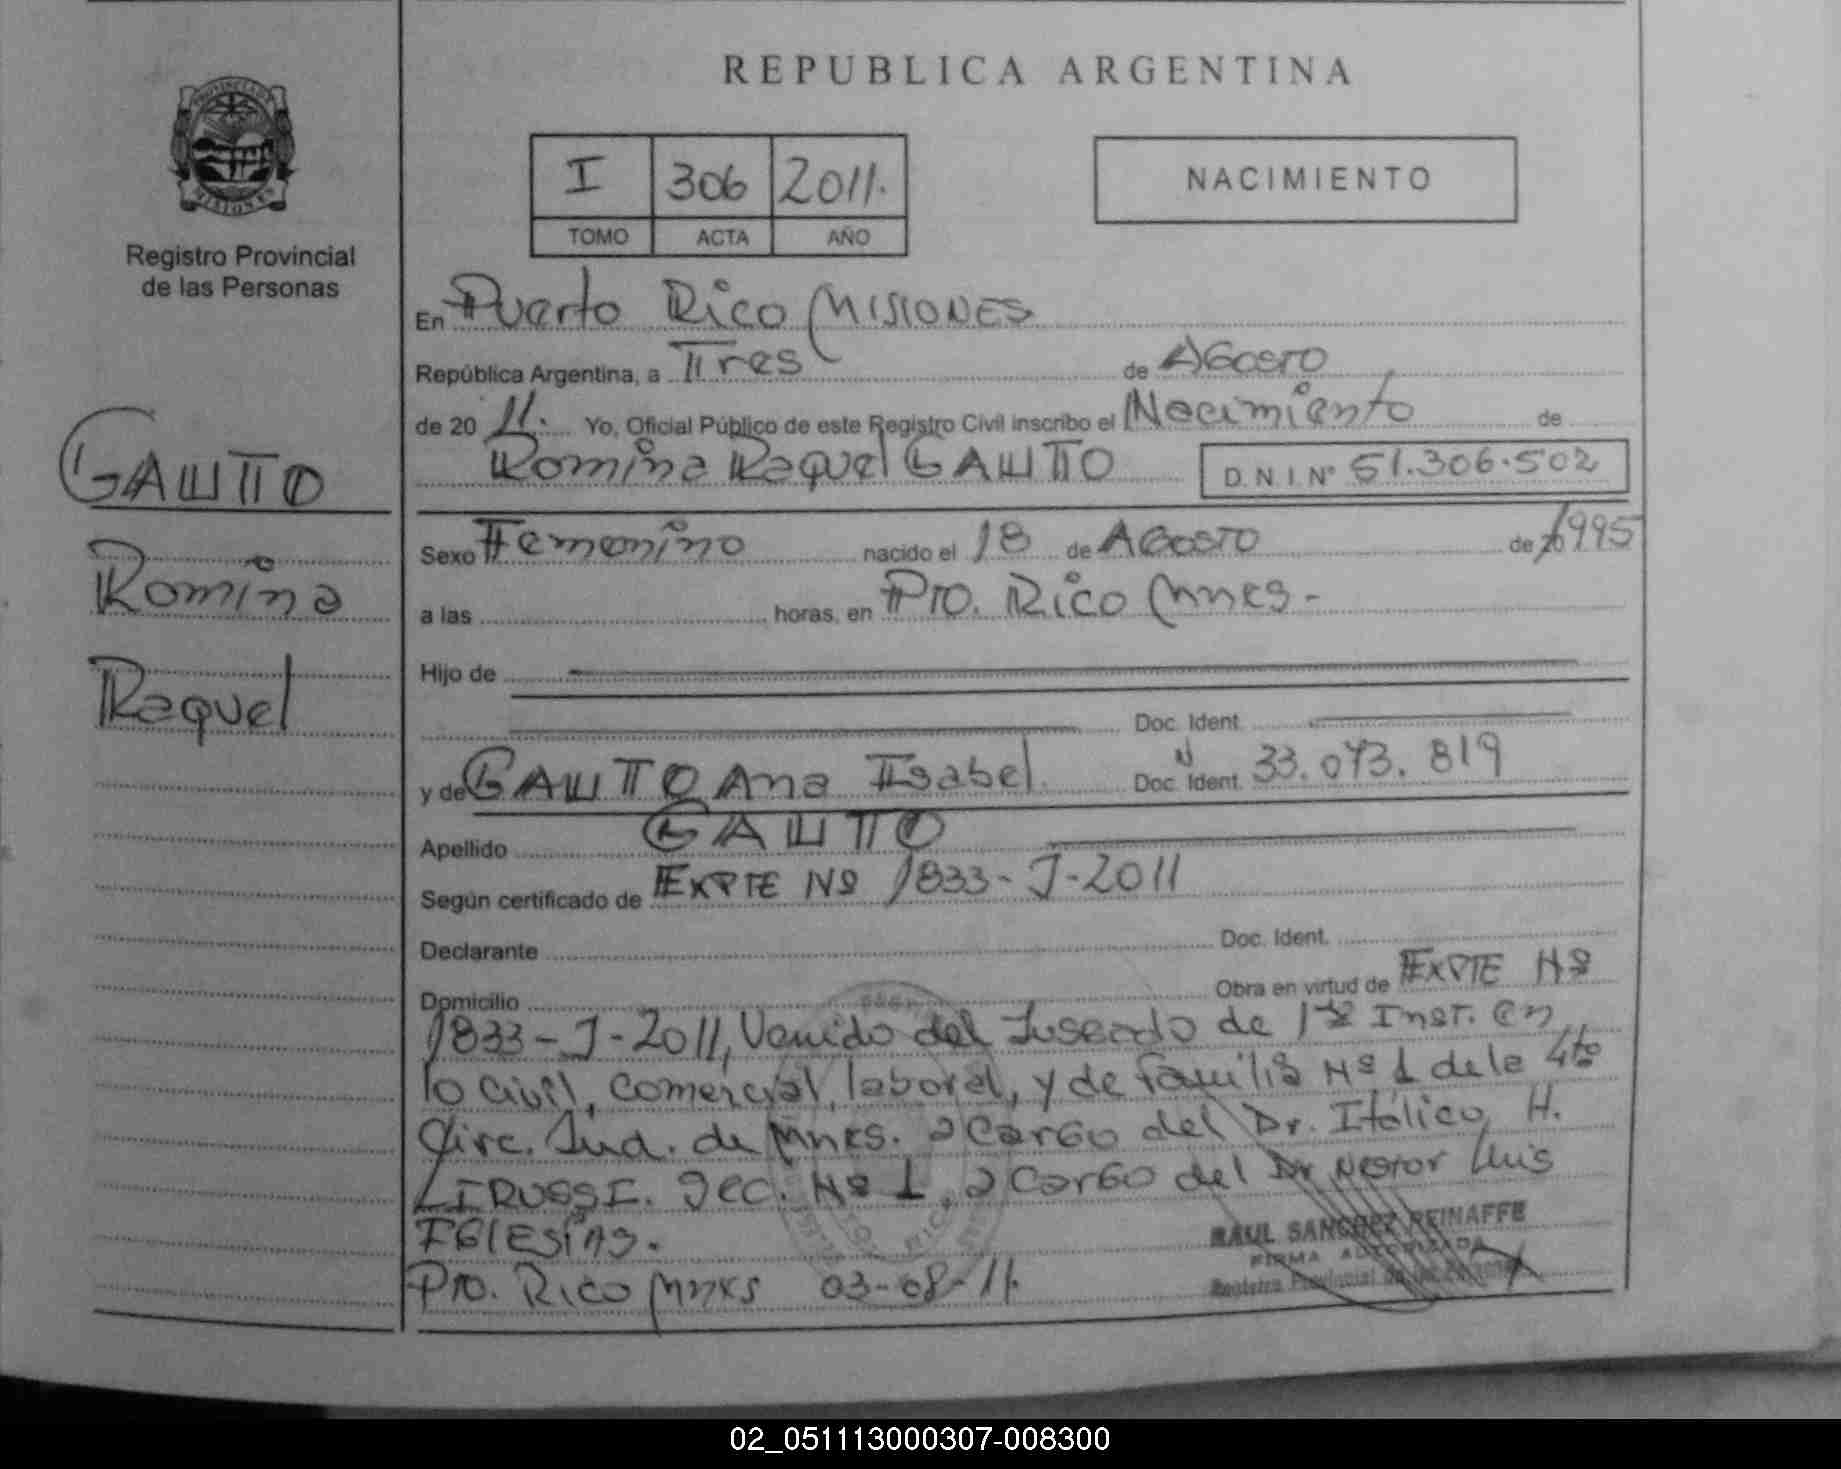 REPUBLICA ARGENTINA
I 306 2011.
TOMO ACTA AÑO
NACIMIENTO
Registro Provincial
de las Personas
GAUTO
Romina
Raquel
En Puerto Rico MISIONES
República Argentina, a Tres de AGOSTO
de 20 11. Yo, Oficial Público de este Registro Civil inscribo el Nacimiento de
Romina Raquel GAUTO D.N.I.Nº 51.306.502
Sexo Femenino nacido el 18 de AGOSTO de 1995
a las horas, en Pto. Rico Mnes-
Hijo de
Doc. Ident.
y de GAUTO Ana Isabel. Doc. Ident. 33.073.819
Apellido GAUTO
Según certificado de EXPTE Nº 1833-J-2011
Declarante Doc. Ident.
Domicilio Obra en virtud de EXPTE Nº
1833-J-2011, Venido del Jusgado de 1ra Inst. en
lo civil, comercial, laboral, y de familia Nº 1 de la 4ta
Circ. Jud. de Mnes. a cargo del Dr. Itálico H.
LIRUSSI. Sec. Nº 1, a cargo del Dr Nestor Luis
IGLESIAS.
Pto. Rico Mnes 03-08-11.
RAUL SANCHEZ REINAFFE
FIRMA AUTORIZADA
Registro Provincial de las Personas
02_051113000307-008300